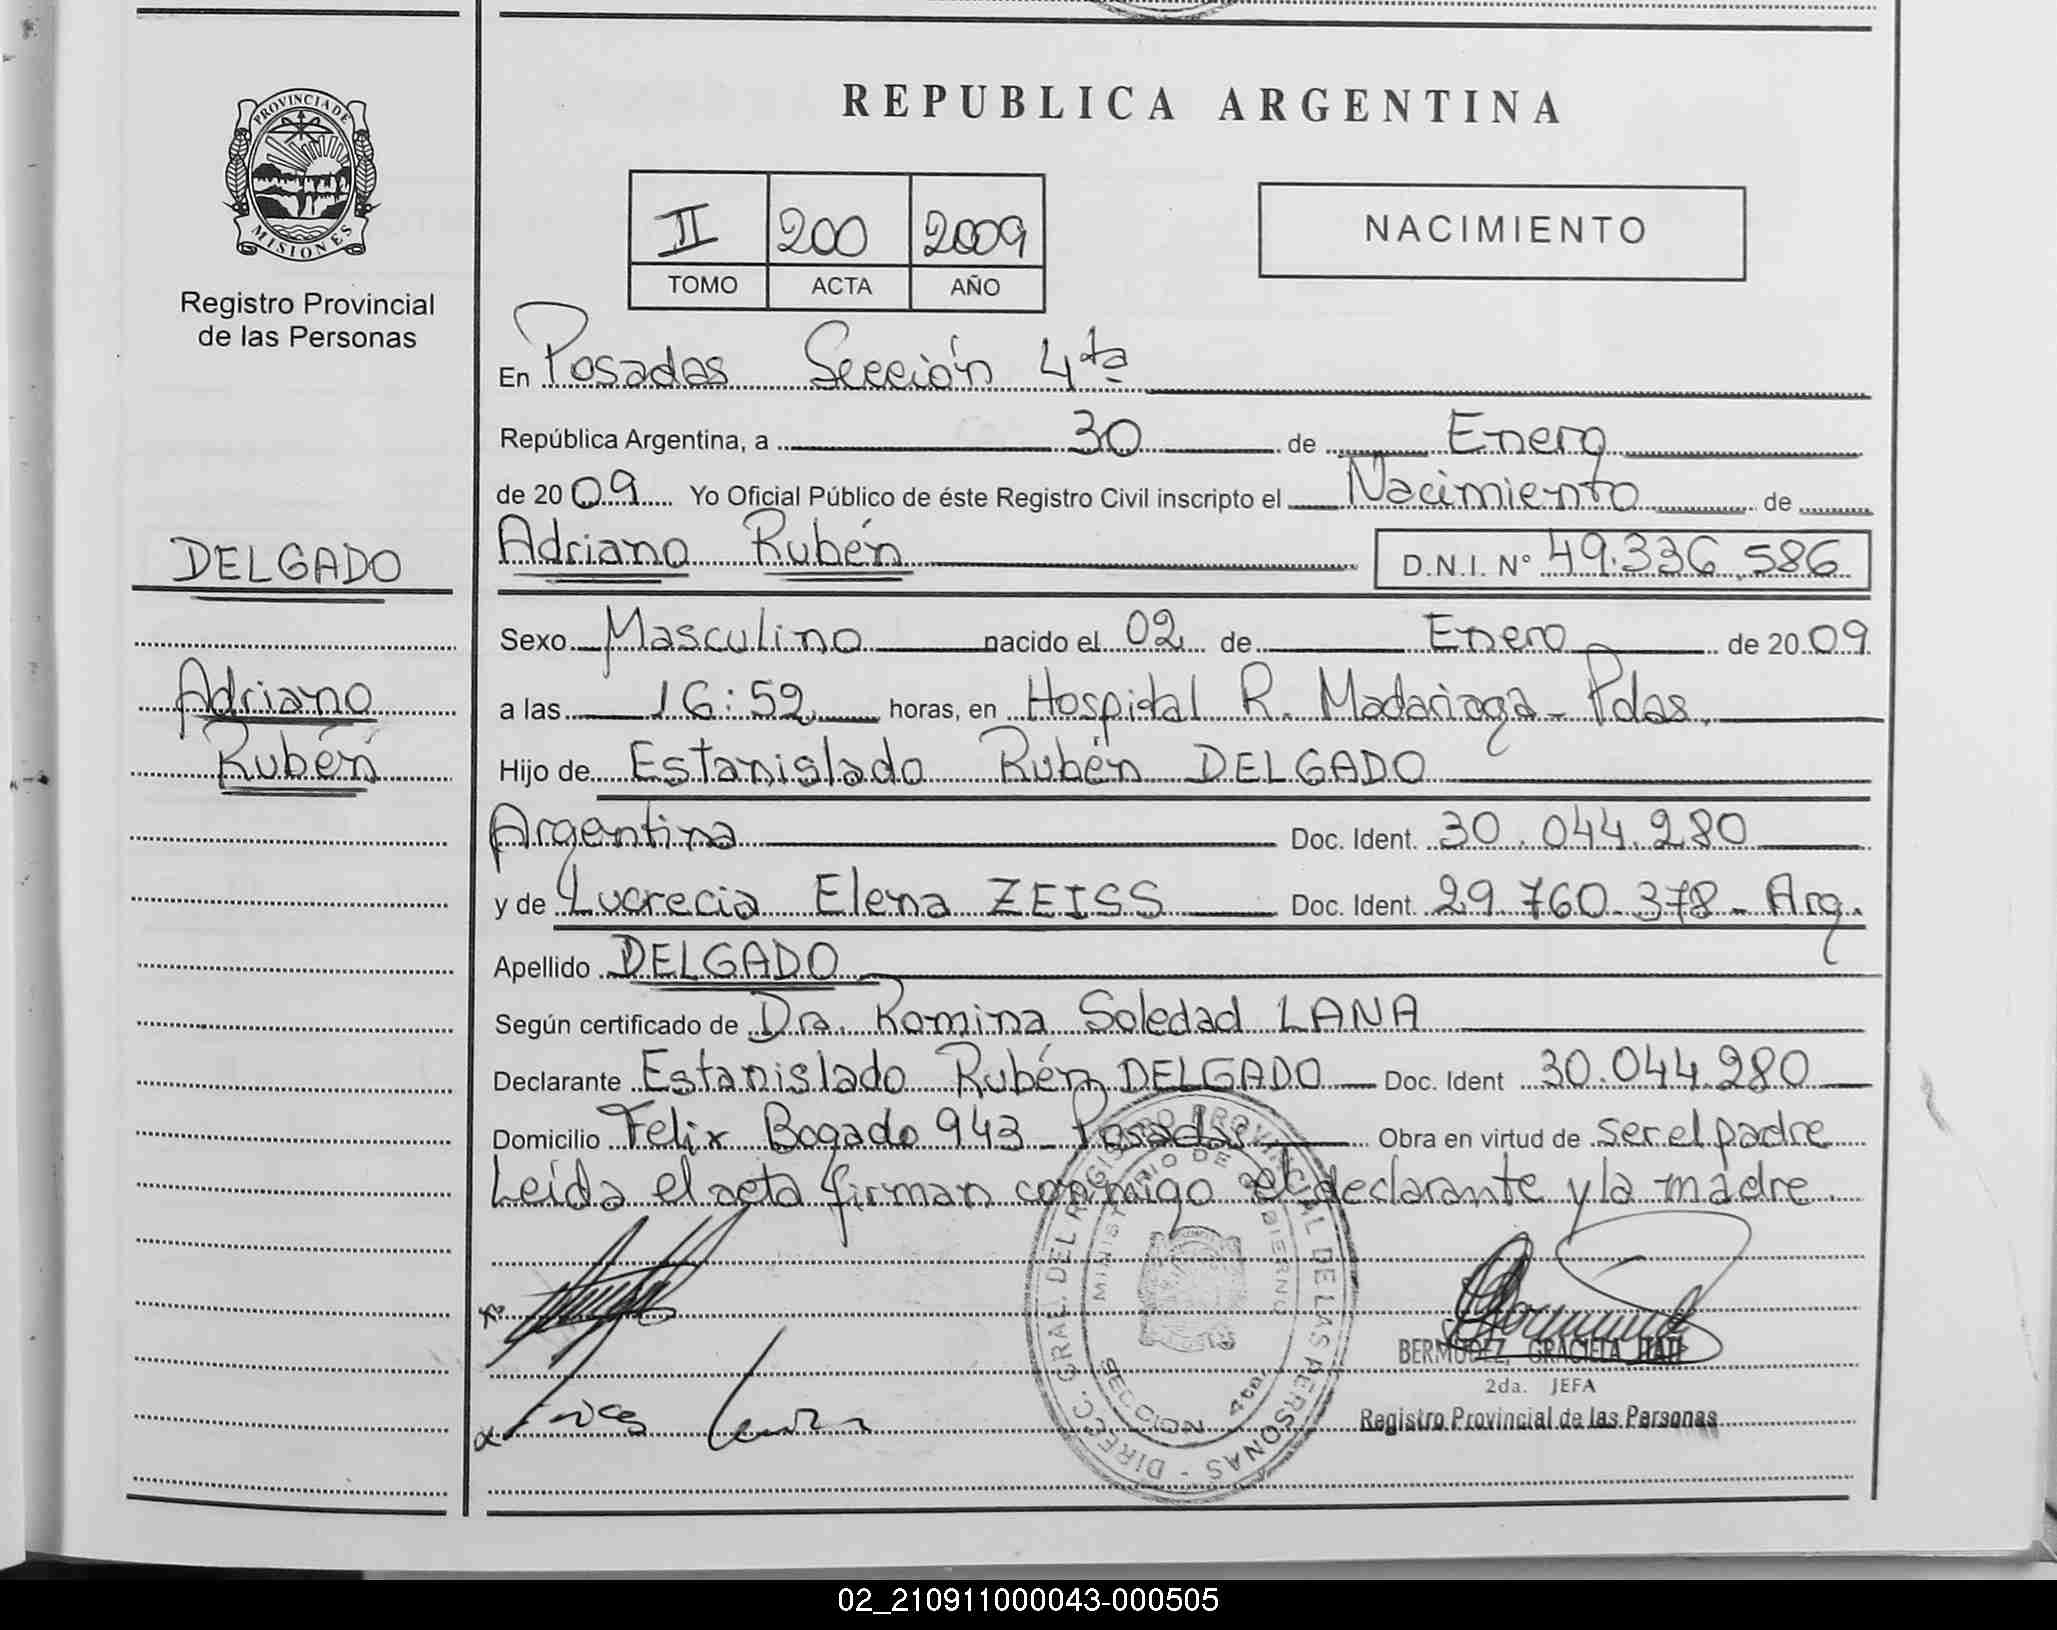 REPUBLICA ARGENTINA
PROVINCIA DE
MISIONES
Registro Provincial
de las Personas
II 200 2009
TOMO ACTA AÑO
NACIMIENTO
En Posadas Sección 4ta
República Argentina, a 30 de Enero
de 2009 Yo Oficial Público de éste Registro Civil inscripto el Nacimiento de
DELGADO
Adriano Rubén D.N.I. N° 49.336.586
Sexo Masculino nacido el 02 de Enero de 2009
Adriano
a las 16:52 horas, en Hospital R. Madariaga - Pdas.
Rubén
Hijo de Estanislado Rubén DELGADO
Argentina Doc. Ident. 30.044.280
y de Lucrecia Elena ZEISS Doc. Ident. 29.760.378 - Arg.
Apellido DELGADO
Según certificado de Dra. Romina Soledad LANA
Declarante Estanislado Rubén DELGADO Doc. Ident 30.044.280
Domicilio Felix Bogado 943 - Posadas Obra en virtud de ser el padre
Leída el acta firman conmigo el declarante y la madre.
DIREC. GRAL. DEL REGISTRO PROVINCIAL DE LAS PERSONAS -
MINISTERIO DE GOBIERNO
SECCION 4ta.
BERMUDEZ, GRACIELA ITATI
2da. JEFA
Registro Provincial de las Personas
02_210911000043-000505